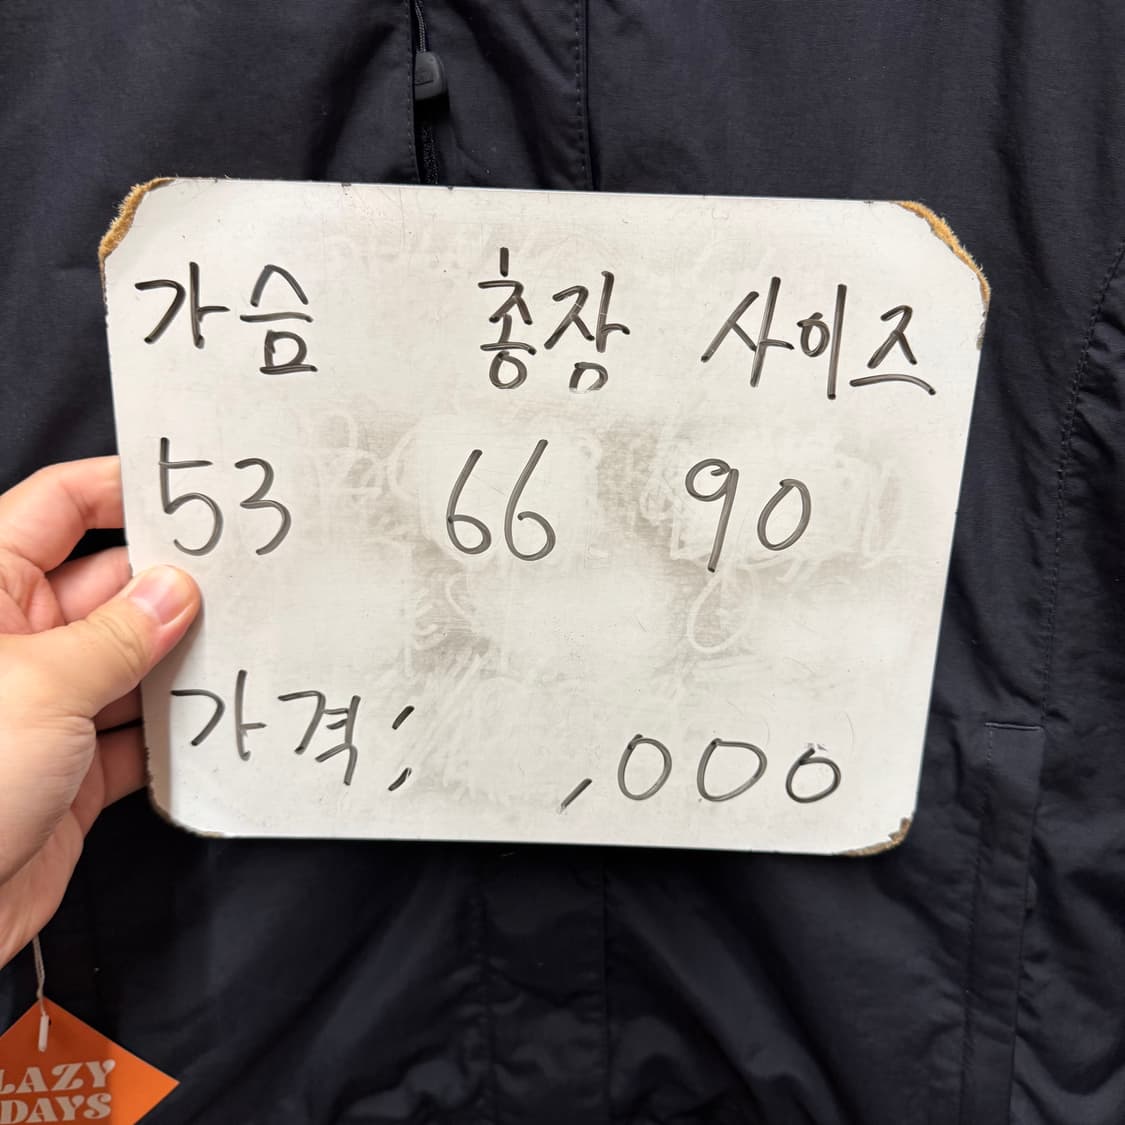 가슴 총장 사이즈
53 66 90
가격; ,000
LAZY
DAYS